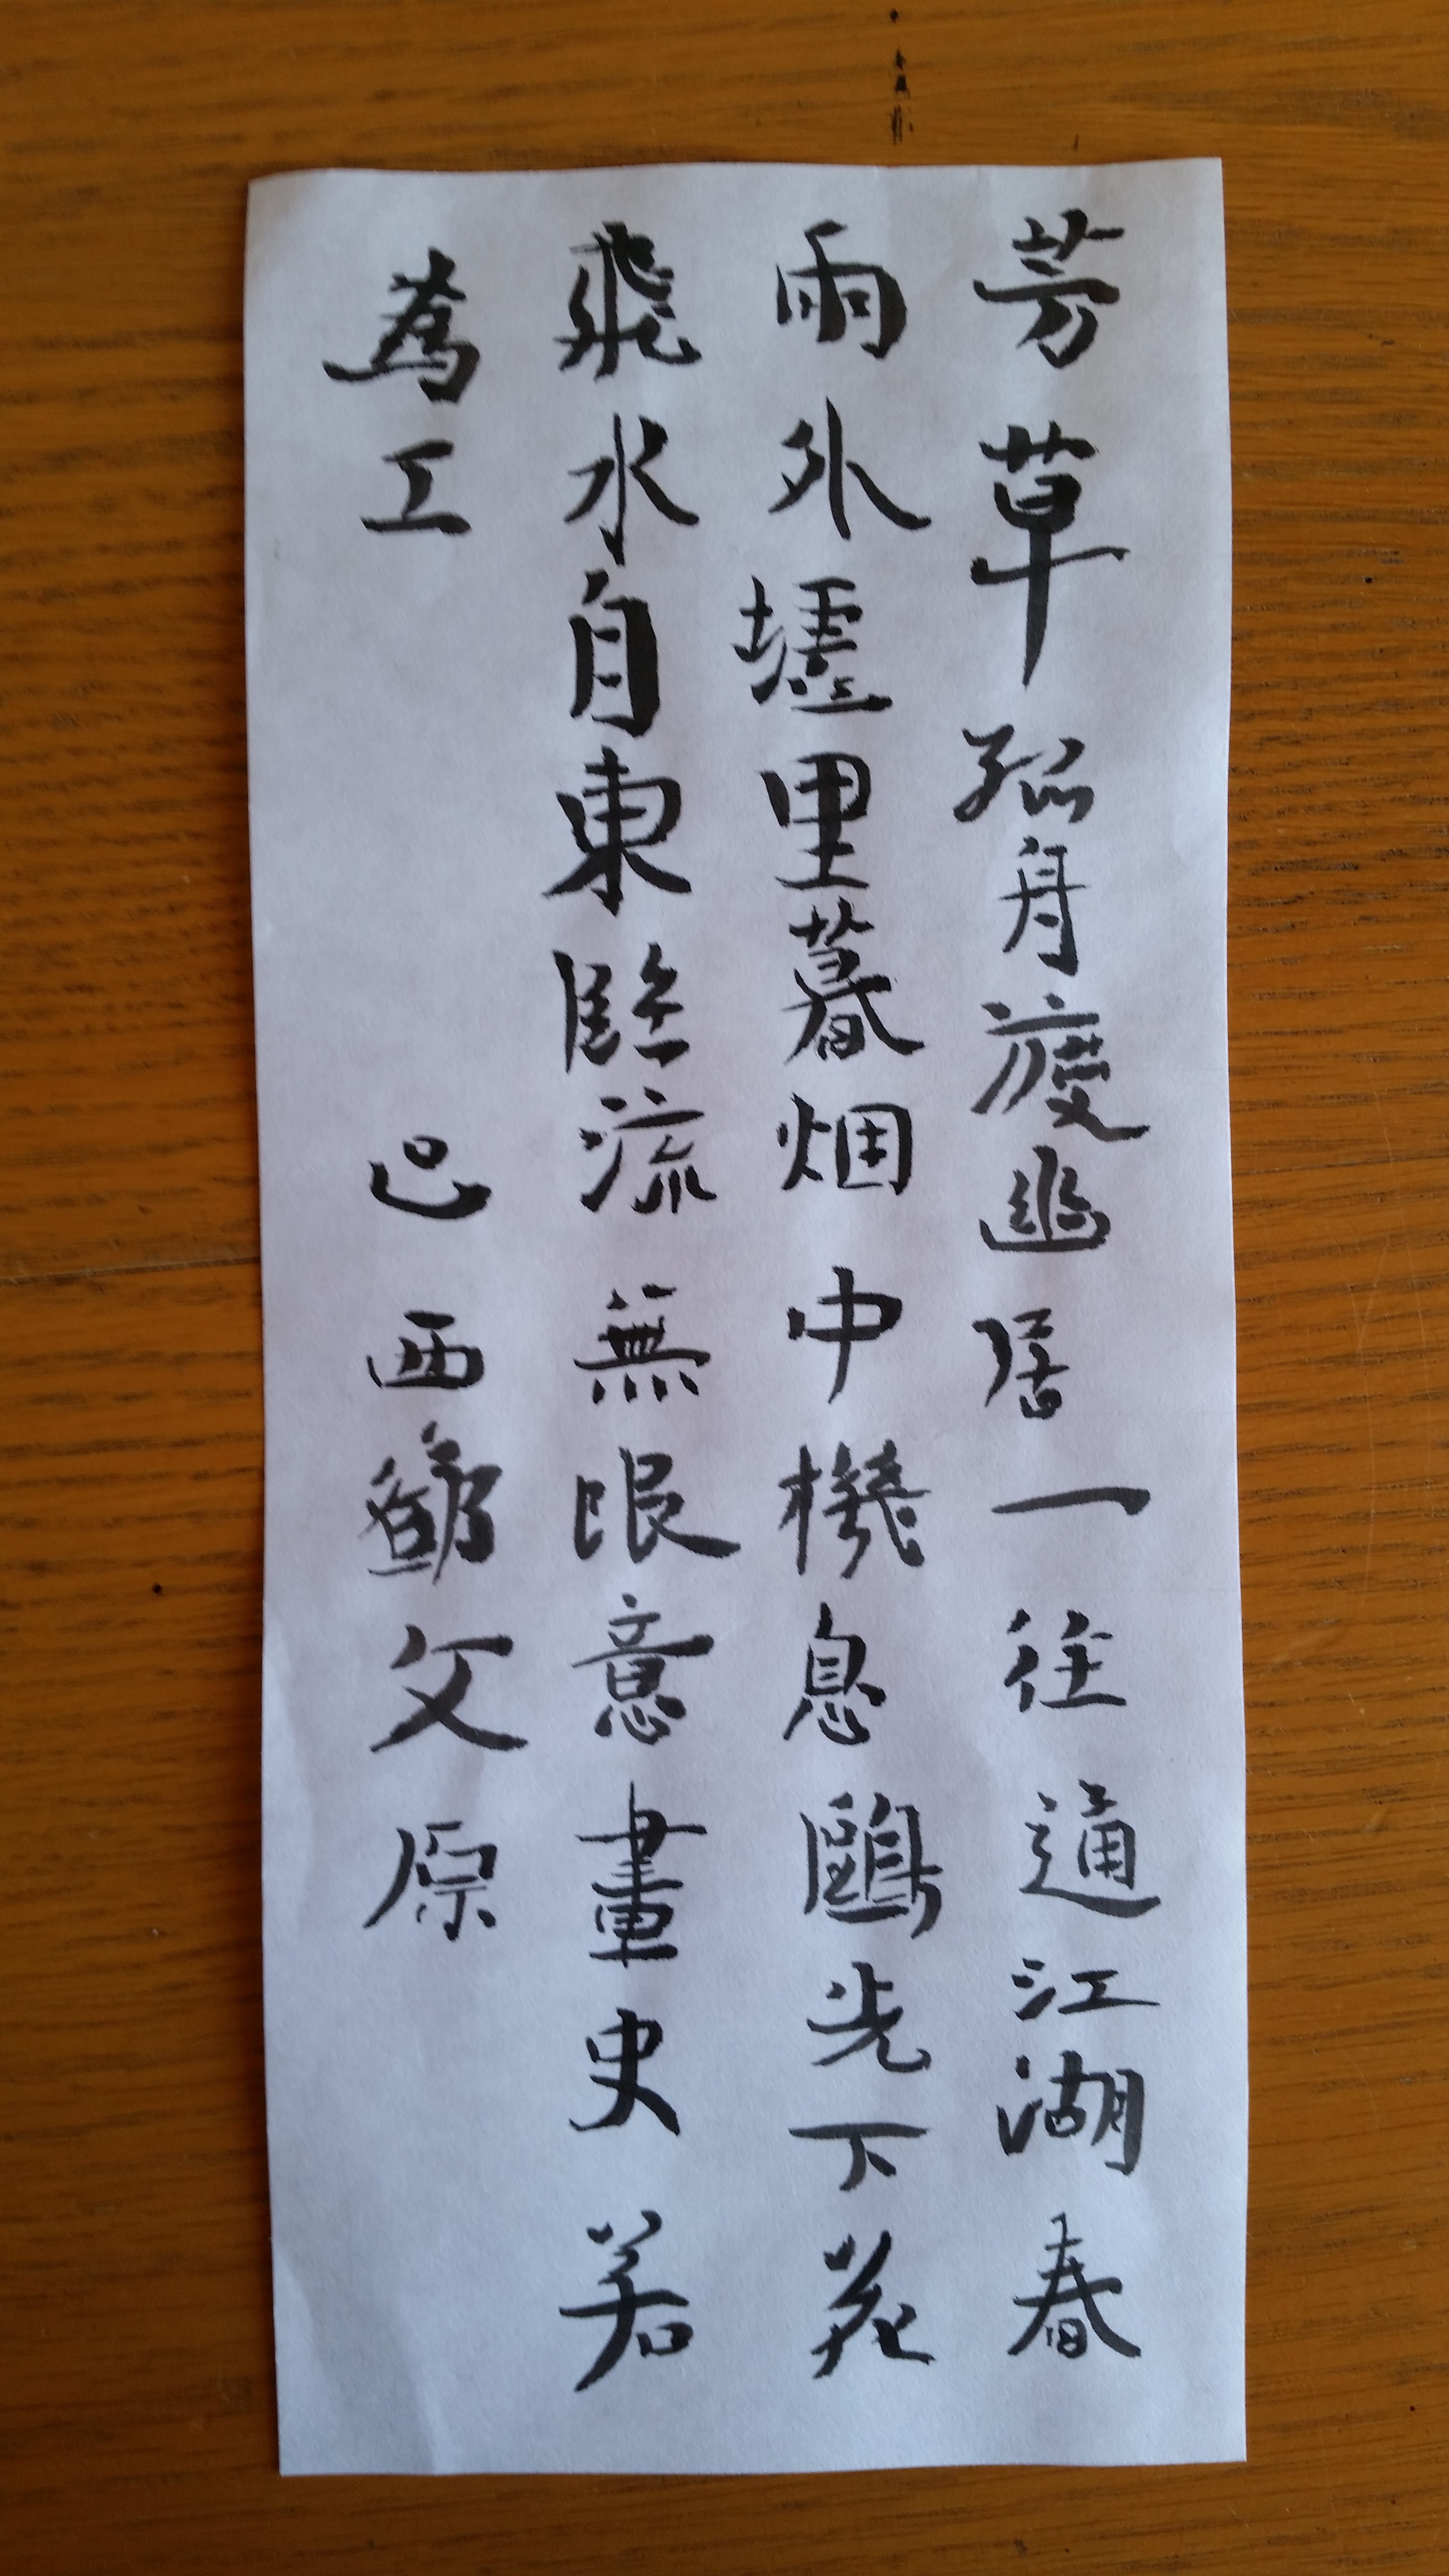 芳草孤舟渡幽居一徑通江湖春
雨外墟里暮烟中機息鷗先下花
飛水自東臨流無限意畫史若
為工
已西 父原